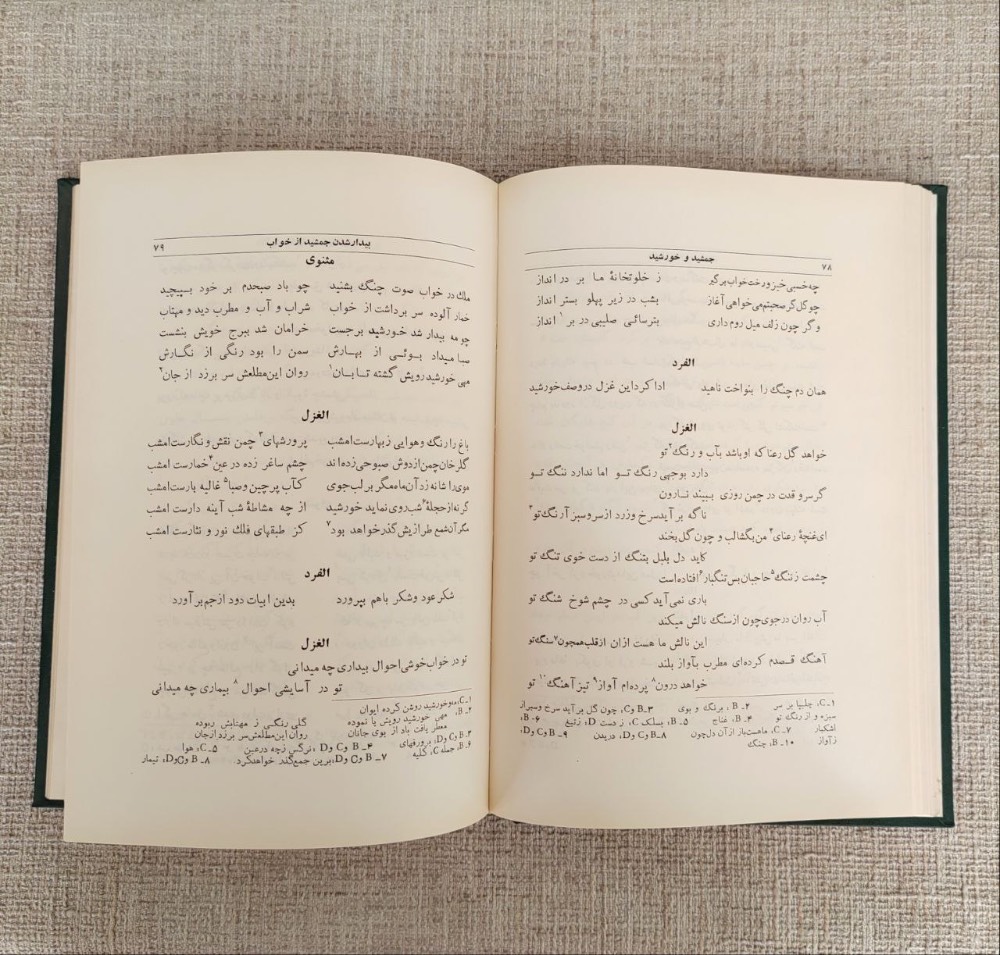 جمشید و خورشید ۷۸
چه خسبی خیز و رخت خواب برگیر ز خلوتخانهٔ ما بر در انداز
چو گل گر صحبتم می‌خواهی آغاز بشب در زیر پهلو بستر انداز
و گر چون زلف میل روم داری بترسائی صلیبی در بر۱ انداز
الفرد
همان دم چنگ را بنواخت ناهید ادا کرد این غزل در وصف خورشید
الغزل
خواهد گل رعنا که او باشد بآب و رنگ۲ تو
دارد بوجهی رنگ تو اما ندارد ننگ تو
گر سرو قدت در چمن روزی ببیند نارون
ناگه بر آید سرخ وزرد از سرو سبز آرنگ تو۳
ای غنچهٔ رعنای۴ من بگشا لب و چون گل بخند
کاید دل بلبل بتنگ از دست خوی تنگ تو
چشمت ز تنگ۵ حاجبان بس تنگبار۶ افتاده است
باری نمی‌آید کسی در چشم شوخ شنگ تو
آب روان در جوی چون از سنگ نالش میکند
این نالش ما هست ازان از قلب همچون۷ سنگ تو
آهنگ قصدم کرده‌ای مطرب بآواز بلند
خواهد درون۸ پرده‌ام آواز۹ تیز آهنگ۱۰ تو
۱ـ C، چلیپا بر سر ۲ـ B، برنگ و بوی ۳ـ B وC، چون گل بر آید سرخ وسبز از
سبزه و از رنگ تو ۴ـ B، غناج ۵ـ B، بسلک C، ز دست D، زتیغ ۶ـ B،
اشکبار ۷ـ C، ماهست‌باز از آن دل‌چون ۸ـ B وC وD، دریدن ۹ـ B وC وD،
زآواز ۱۰ـ B، چنگ
بیدار شدن جمشید از خواب ۷۹
مثنوی
ملک در خواب صوت چنگ بشنید چو باد صبحدم بر خود بپیچید
خمار آلوده سر برداشت از خواب شراب و آب و مطرب دید و مهتاب
چو مه بیدار شد خورشید برجست خرامان شد ببرج خویش بنشست
صبا میداد بوئی از بهارش سمن را بود رنگی از نگارش
مهی خورشید رویش گشته تابان۱ روان این مطلعش سر برزد از جان۲
الغزل
باغ را رنگ و هوایی ز بهارست امشب پرورشهای۳ چمن نقش و نگارست امشب
گلرخان چمن از دوش صبوحی زده‌اند چشم ساغر زده در عین۴ خمارست امشب
موی را شانه زد آن ماه مگر بر لب جوی کآب پر چین و صبا۵ غالیه بارست امشب
گر نه از حجلهٔ۶ شب روی نماید خورشید از چه مشاطهٔ شب آینه دارست امشب
مگر آن شمع طرازیش گذر خواهد بود۷ کز طبقهای فلک نور و نثارست امشب
الفرد
شکر عود و شکر باهم بپرورد بدین ابیات دود از جم بر آورد
الغزل
تو در خواب خوشی احوال بیداری چه میدانی
تو در آسایشی احوال۸ بیماری چه میدانی
۱ـ C، چوخورشید روشن کرده ایوان
۲ـ B، مهی خورشید رویش پا نموده گلی رنگی ز مهتابش ربوده
معطر یافت باد از بوی جانان روان این‌مطلعش‌سر برزد ازجان
۳ـ B وC وD، برورقهای ۴ـ B وC وD، نرگس زچه درعین ۵ـ C، هوا
۶ـ B، جمله C، کلیه ۷ـ B وC وD، برین جمع‌گذر خواهدکرد ۸ـ B وC وD، تیمار